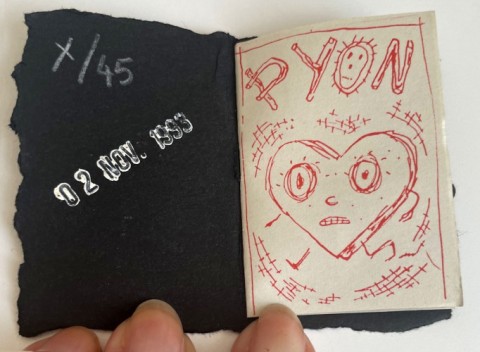 X/45
02 NOV. 1998
PYON